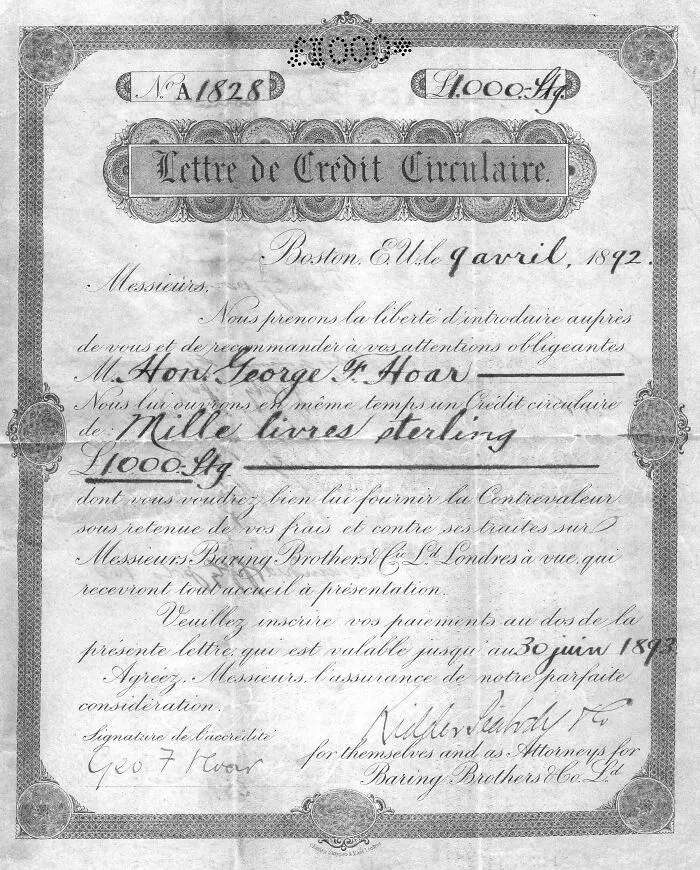 £1000*
No A1828
£1.000. Stg.
Lettre de Crédit Circulaire.
Boston, E.U. le 9 avril, 1892.
Messieurs,
Nous prenons la liberté d'introduire auprès
de vous et de recommander à vos attentions obligeantes
M. Hon. George F. Hoar
Nous lui ouvrons en même temps un Crédit circulaire
de Mille livres sterling
£1000. Stg
dont vous voudrez bien lui fournir la Contrevaleur
sous retenue de vos frais et contre ses traites sur
Messieurs Baring Brothers & Cie. Ld. Londres à vue, qui
recevront tout accueil à présentation.
Veuillez inscrire vos paiements au dos de la
présente lettre, qui est valable jusqu'au 30 juin 1893
Agréez, Messieurs, l'assurance de notre parfaite
considération.
Kidder Peabody & Co
Signature de l'acrédité
Geo F Hoar
for themselves and as Attorneys for
Baring Brothers & Co. Ld.